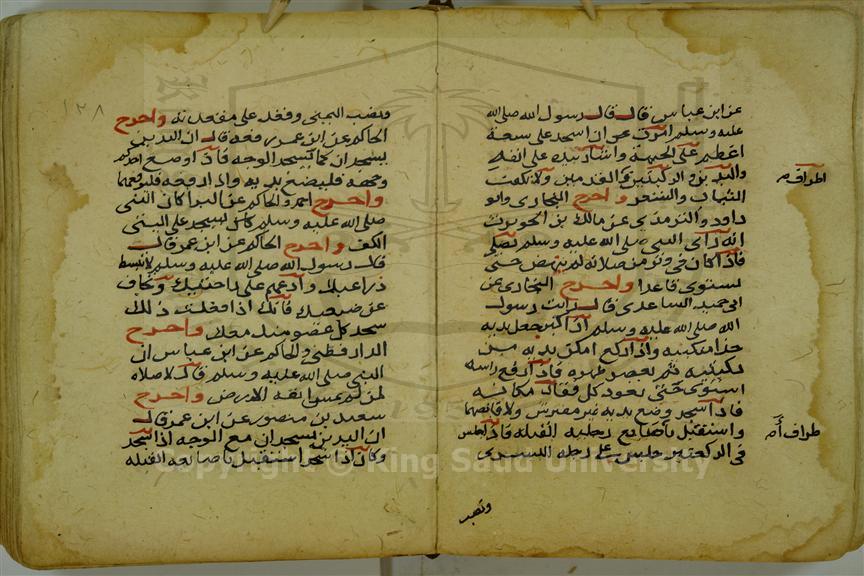 عن ابن عباس قال قال رسول الله صلى الله
عليه وسلم امرت ان اسجد على سبعة
اعظم على الجبهة واشار بيده على انفه
واليدين والركبتين والقدمين ولا نكفت
الثياب والشعر واخرج البخارى وابو
داود والترمذى عن مالك بن الحويرث
انه راى النبى صلى الله عليه وسلم يصلى
فاذا كان فى وتر من صلاته لم ينهض حتى
يستوى قاعدا واخرج البخارى عن
ابى حميد الساعدى قال رايت رسول
الله صلى الله عليه وسلم اذا كبر جعل يديه
حذا منكبيه واذا ركع امكن يديه من
ركبتيه ثم هصر ظهره فاذا رفع راسه
استوى حتى يعود كل فقار مكانه
فاذا سجد وضع يديه غير مفترش ولا قابضهما
واستقبل باصابع رجليه القبلة فاذا جلس
فى الركعتين جلس على رجله اليسرى
ونصب
اطراف
اطراف
١٢٨
ونصب اليمنى وقعد على مقعدته واخرج
الحاكم عن ابن عمر رفعه قال ان اليدين
يسجدان كما يسجد الوجه فاذا وضع احدكم
وجهه فليضع يديه واذا رفعه فليرفعهما
واخرج احمد والحاكم عن البرا كان النبى
صلى الله عليه وسلم كان يسجد على اليتى
الكف واخرج الحاكم عن ابن عمر قال
قال رسول الله صلى الله عليه وسلم لا تبسط
ذراعيك وادعم على راحتيك وتجاف
عن ضبعيك فانك اذا فعلت ذلك
سجد كل عضو منك معك واخرج
الدارقطنى والحاكم عن ابن عباس ان
النبى صلى الله عليه وسلم قال لا صلاه
لمن لم يمس انفه الارض واخرج
سعيد بن منصور عن ابن عمر قال
ان اليدين تسجدان مع الوجه اذا سجد
وكان اذا سجد استقبل باصابعه القبله
Copyright © King Saud University